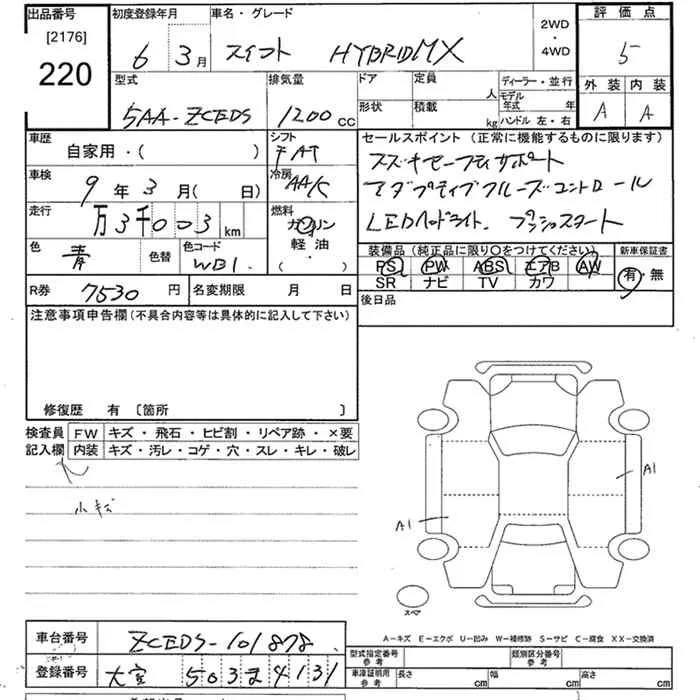 出品番号 初度登録年月 車名・グレード 2WD・4WD 評価点
[2176] 6 3月 スイフト HYBRIDMX 5
220 外装 内装
型式 排気量 ドア 定員 人 ディーラー・並行
5AA-ZCEDS 1200cc 形状 積載 kg モデル年式 年 A A
ハンドル 左・右
車歴 シフト セールスポイント (正常に機能するものに限ります)
自家用・( ) FAT スズキセーフティサポート
車検 冷房 アダプティブクルーズコントロール
9年3月(日) AA/C LEDヘッドライト. プッシュスタート
走行 万3千003km 燃料 ガソリン 軽油・( )
色 青 色替 色コード WB1. 装備品 (純正品に限り○をつけてください) 新車保証書
PS PW ABS エアB AW 有・無
R券 7530円 名変期限 月 日 SR ナビ TV カワ
注意事項申告欄(不具合内容等は具体的に記入して下さい) 後日品
修復歴 有 〔箇所 〕
検査員 FW キズ・飛石・ヒビ割・リペア跡・×要
記入欄 内装 キズ・汚レ・コゲ・穴・スレ・キレ・破レ
小キズ
A1
A1
スペア
A-キズ E-エクボ U-凹み W-補修跡 S-サビ C-腐食 XX-交換済
車台番号 ZCEDS-101878 型式指定番号 参考 類別区分番号 参考
登録番号 503 4131 車庫証明用 参考 長さ cm 幅 cm 高さ cm